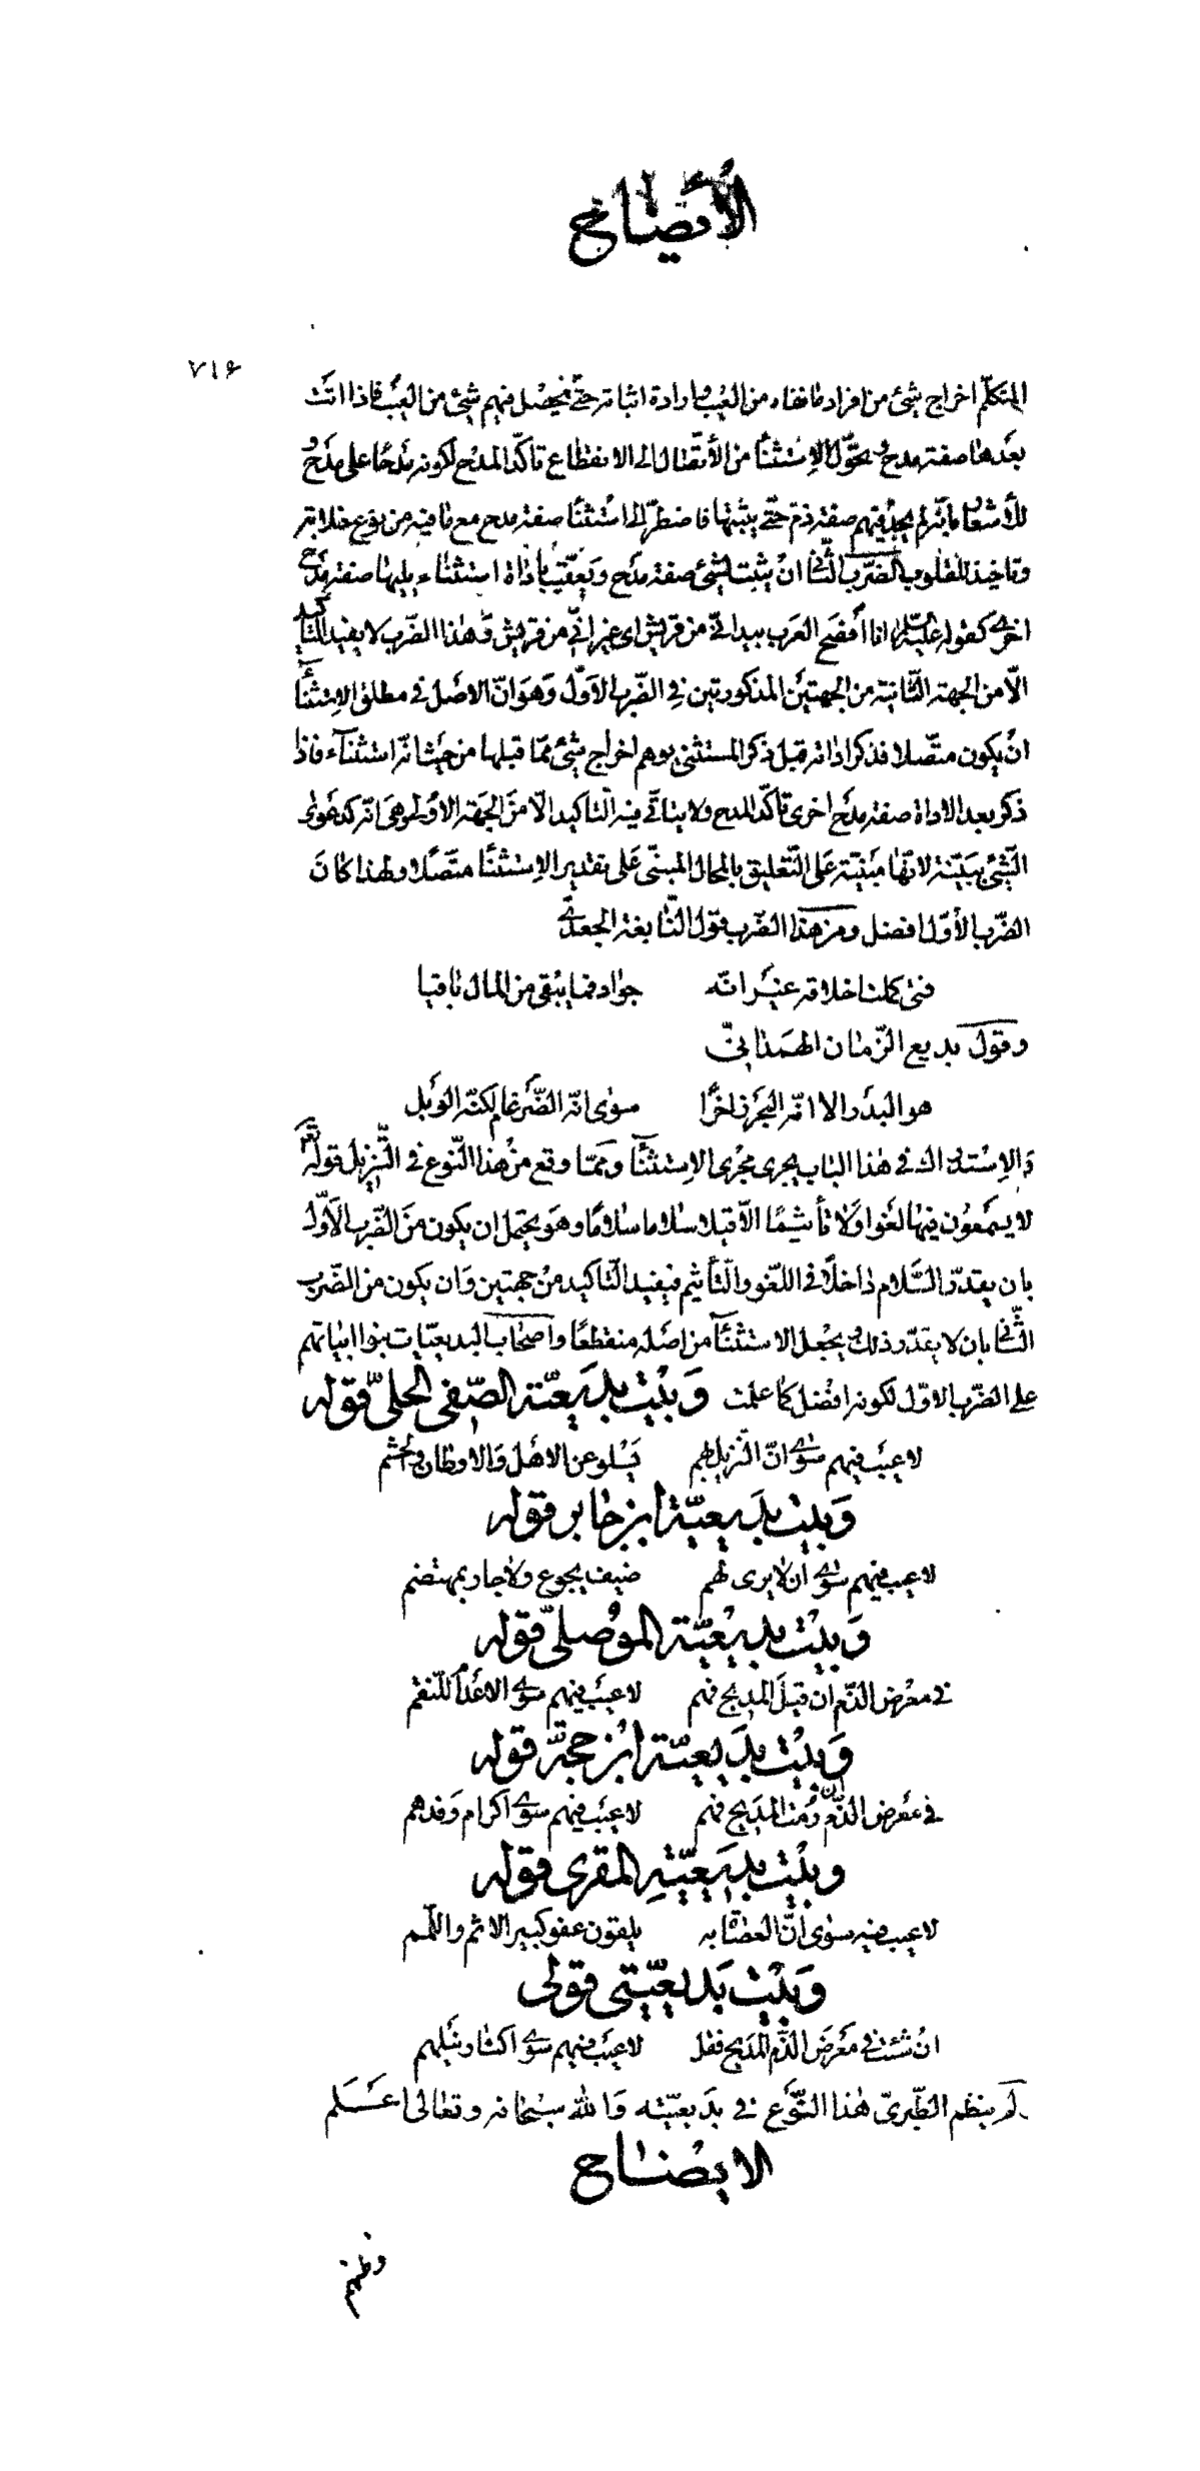 الأيضاح
٧١۶
المتكلّم اخراج شئ من افراد ما نفاه من العيب وارادة اثباته حتّى يحصل فيهم شئ من العيب فاذا اتت
بعدها صفة مدح وتحوّل الاستثنآ من الأتّصال الى الانفطاع تاكّد المدح لكونه مدحًا على مدح
للأشعار بانّه لم يجد فيهم صفة ذمّ حتّى يثبتها فاضطرّ الى استثنآ صفة مدح مع ما فيه من نوع خلابة
وتاخيذ للقلوب الضّرب الثّانى ان يثبت لشئ صفة مدح وتعقّب باداة استثناء يليها صفة مدح
اخرى كقوله عليه السّلم انا افصح العرب بيد انّى من قريش اى غير انّى من قريش وهذا الضّرب لا يفيد التّاكيد
الّا من الجهة الثّانية من الجهتين المذكورتين فى الضّرب الاوّل وهو انّ الاصل فى مطلق الاستثنآ
ان يكون متّصلا فذكر اداته قبل ذكر المستثنى يوهم اخراج شئ ممّا قبلها من حيث انّه استثنآء فاذا
ذكر بعد الاداة صفة مدح اخرى تاكّد المدح ولا يتاتّى فيه التاكيد الّا من الجهة الاولى وهى انّه كدعوى
الشّئ ببيّنة لانّها مبنيّة على التّعليق بالمحال المبنىّ على تقدير الاستثنآ متّصلا ولهذا كان
الضّرب الأوّل افضل ومن هذا الضّرب قول النّابغة الجعدى
فتى كملت اخلاقه غير انّه جواد فما يبقى من المال باقيا
وقول بديع الزّمان الهمذانىّ
هو البدر الا انّه البحر زاخرًا سوى انّه الضّرغام لكنّه الوبل
والاستدراك فى هذا الباب يجرى مجرى الاستثنآ وممّا وقع من هذا النّوع فى التّنزيل قوله تعالى
لا يسمعون فيها لغوا ولا تأثيمًا الّا قيلا سلاما سلامًا وهو يحتمل ان يكون من الضّرب الاوّل
بان يقدّر السّلام داخلًا فى اللّغو والتّأثيم فيفيد التّاكيد من جهتين وان يكون من الضّرب
الثّانى بان لا يقدّر ذلك ويجعل الاستثنآ من اصله منقطعًا واصحاب البديعيّات بنوا ابياتهم
على الضّرب الاوّل لكونه افضل كما علمت وبيت بديعيّة الصّفى الحلىّ قوله
لا عيب فيهم سوى انّ النّزيل بهم يسلو عن الاهل والاوطان والحشم
وبيت بديعيّة ابن جابر قوله
لا عيب فيهم سوى ان لا يرى لهم ضيف يجوع ولا جار بمهتضم
وبيت بديعيّة الموصلىّ قوله
فى معرض الذّم ان قيل المديح فهم لا عيب فيهم سوى الاعدآ للنّعم
وبيت بديعيّة ابن حجّة قوله
فى معرض الذّمّ ان رمت المديح فهم لا عيب فيهم سوى اكرام وفدهم
وبيت بديعيّة المقرى قوله
لا عيب فيه سوى انّ العصاة به يلقون عفو كبير الاثم واللّمم
وبيت بديعيّتى قولى
ان شئت فى معرض الذّم المديح فقل لا عيب فيهم سوى اكثار نيلهم
ولم ينظم الطّبرىّ هذا النّوع فى بديعيّته والله سبحانه وتعالى اعلم
الايضاح